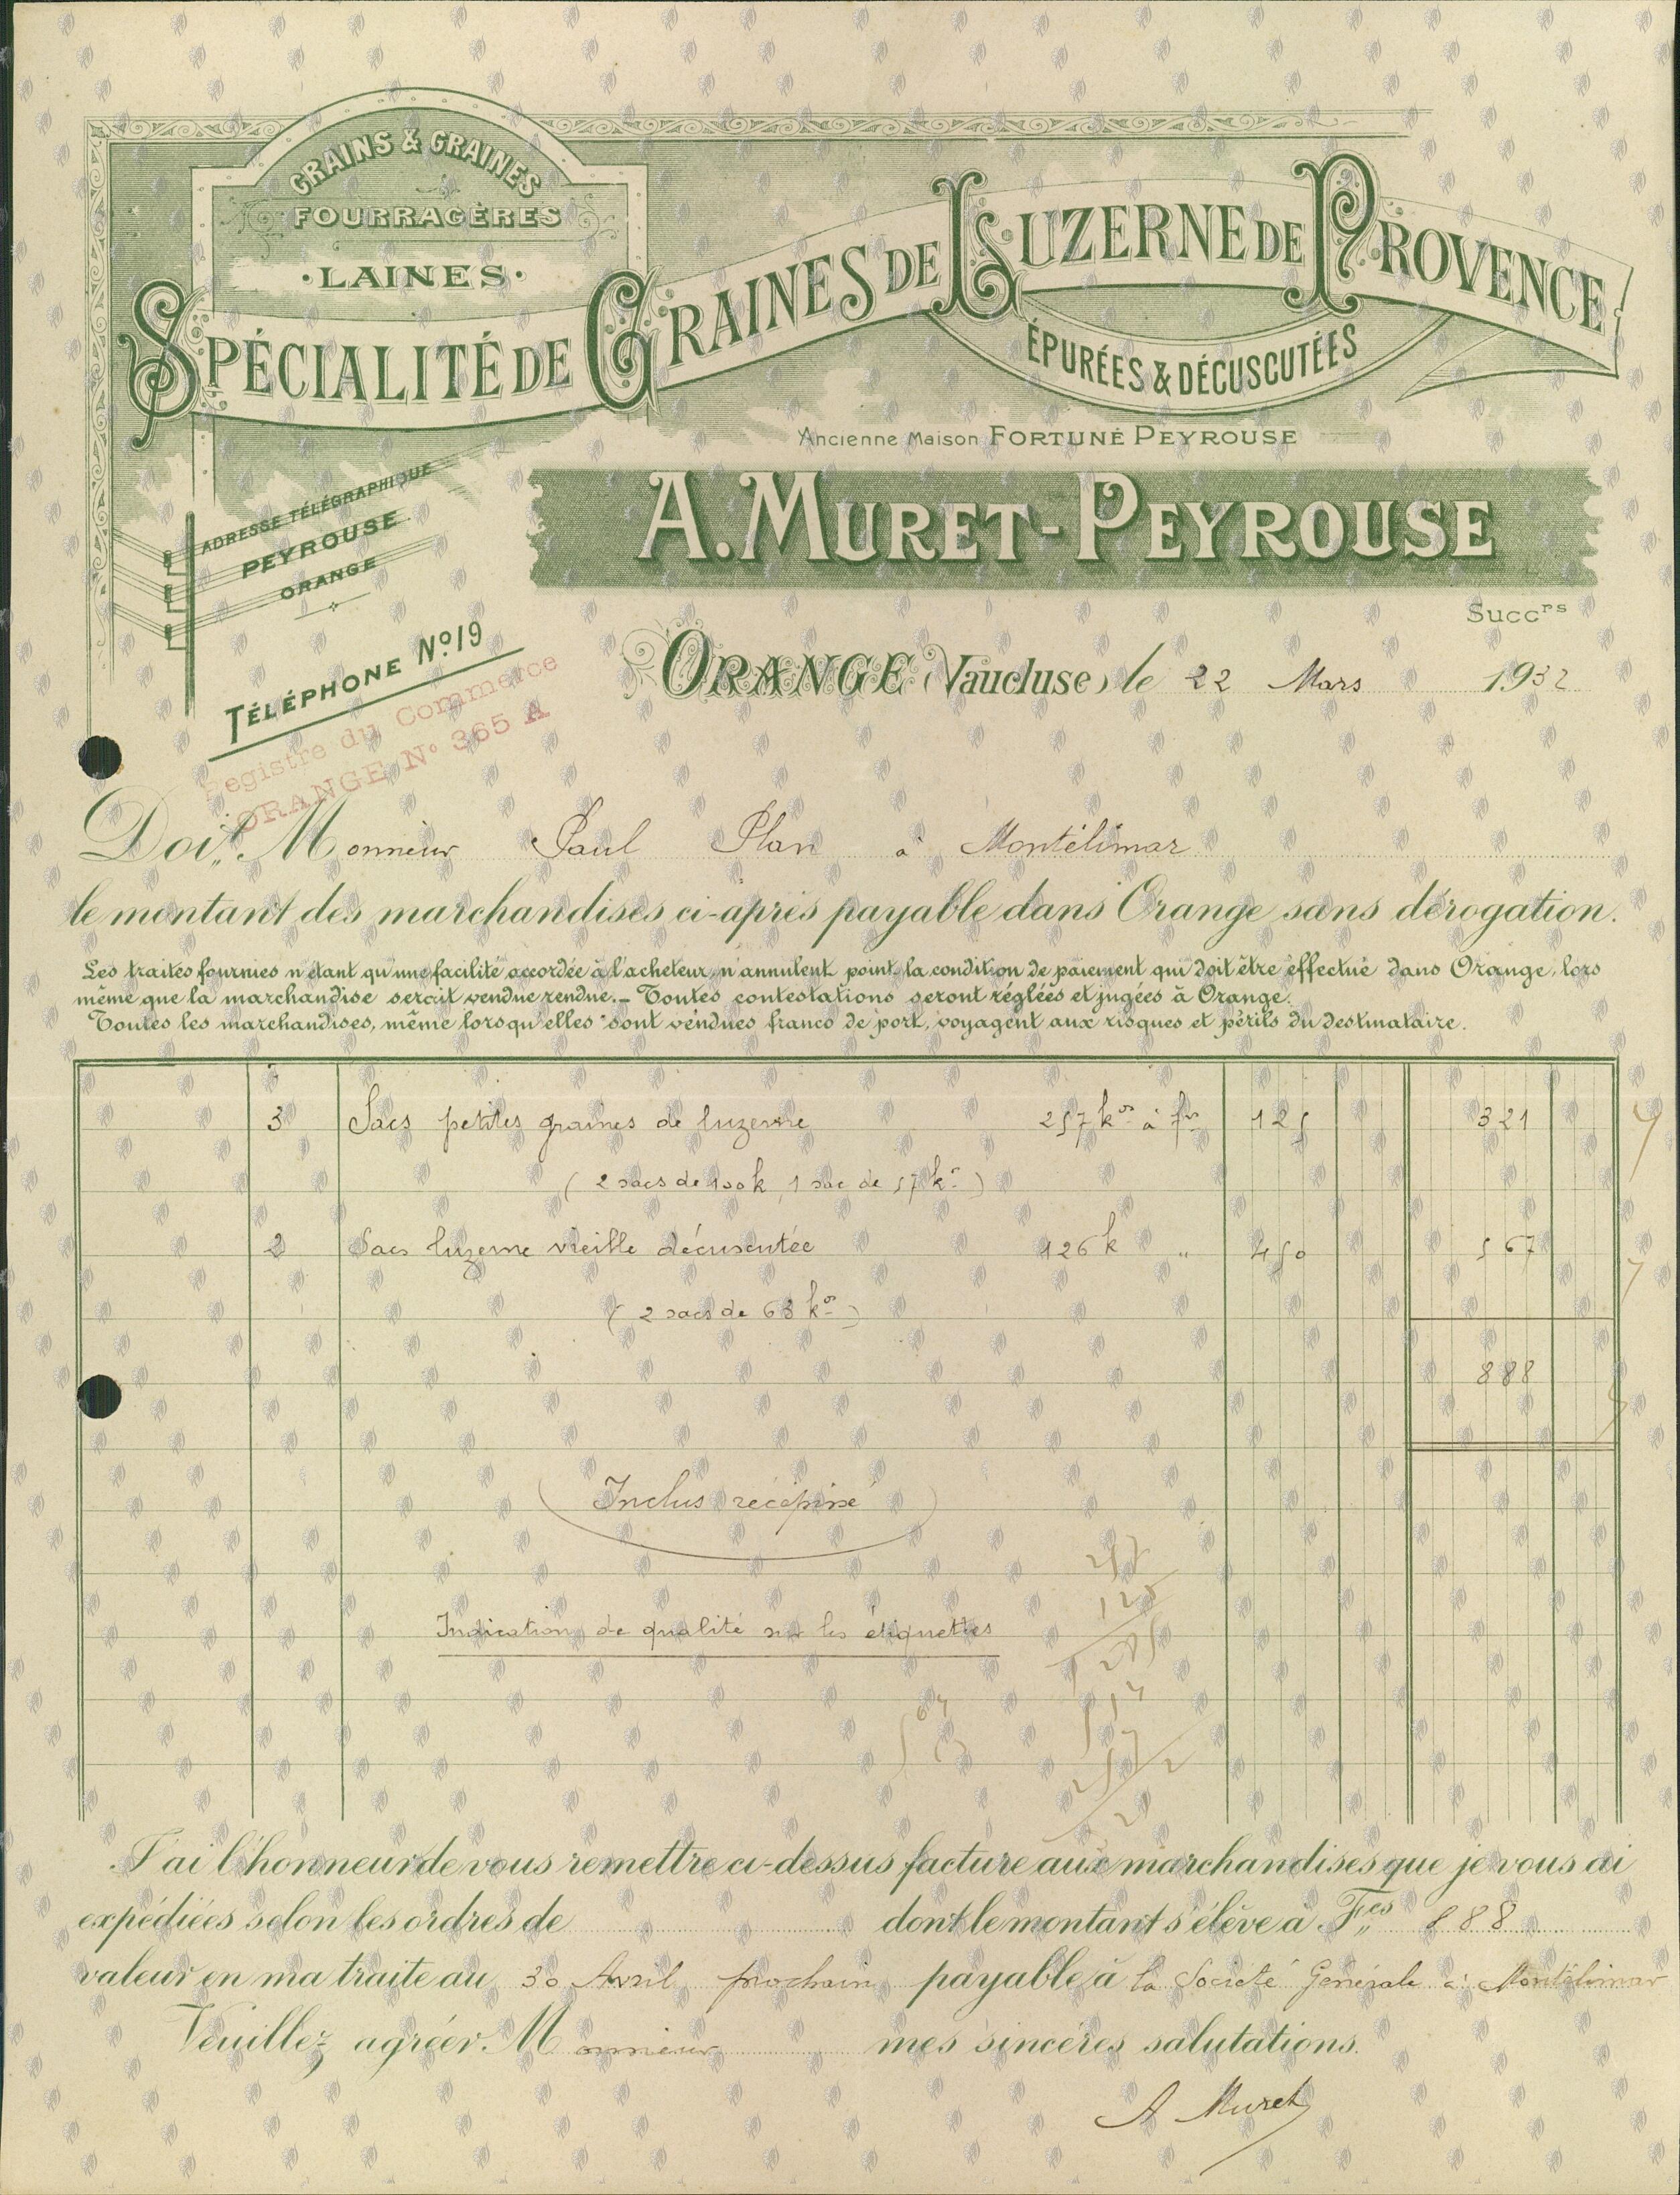 GRAINS & GRAINES
FOURRAGÈRES
·LAINES·
SPÉCIALITÉ DE GRAINES DE LUZERNE DE PROVENCE
ÉPURÉES & DÉCUSCUTÉES
Ancienne Maison FORTUNÉ PEYROUSE
A. MURET-PEYROUSE
Succrs
ADRESSE TÉLÉGRAPHIQUE
PEYROUSE
ORANGE
TÉLÉPHONE No 19
Registre du Commerce
ORANGE No 365 A
ORANGE (Vaucluse) le 22 Mars 1932
Doit Monsieur Paul Plan à Montélimar
le montant des marchandises ci-après payable dans Orange sans dérogation.
Les traites fournies n'étant qu'une facilité accordée à l'acheteur, n'annulent point la condition de paiement qui doit être effectué dans Orange, lors
même que la marchandise serait vendue rendue.- Toutes contestations seront réglées et jugées à Orange.
Toutes les marchandises, même lorsqu'elles sont vendues franco de port, voyagent aux risques et périls du destinataire.
3 Sacs petites graines de luzerne 257 kos à frs 125 321
( 2 sacs de 100 k, 1 sac de 57 ks )
2 Sacs luzerne vieille décuscutée 126 k " 450 567
( 2 sacs de 63 kos )
888
Inclus récépissé
257
125
Indication de qualité sur les étiquettes
1285
514
257
J'ai l'honneur de vous remettre ci-dessus facture aux marchandises que je vous ai
expédiées selon les ordres de dont le montant s'élève à Fcs 888
valeur en ma traite au 30 Avril prochain payable à la Société Générale à Montélimar
Veuillez agréer Monsieur mes sincères salutations.
A Muret